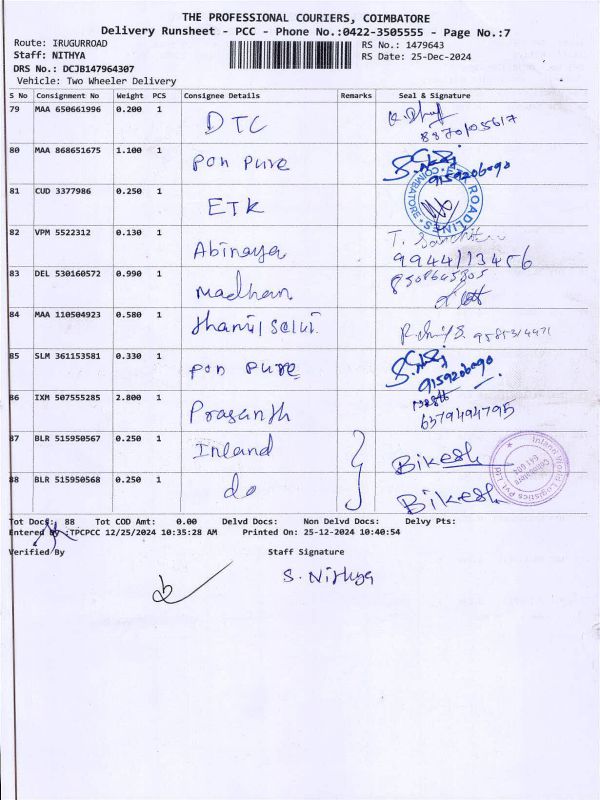 THE PROFESSIONAL COURIERS, COIMBATORE
Delivery Runsheet - PCC - Phone No.:0422-3505555 - Page No.:7
Route: IRUGURROAD
RS No.: 1479643
Staff: NITHYA
RS Date: 25-Dec-2024
DRS No.: DCJB147964307
Vehicle: Two Wheeler Delivery
S No Consignment No Weight PCS Consignee Details Remarks Seal & Signature
79 MAA 650661996 0.200 1 DTC
8870105617
80 MAA 868651675 1.100 1 Pon Pure
9159206090
81 CUD 3377986 0.250 1 ETK
ROADLINES COIMBATORE
82 VPM 5522312 0.130 1 Abinaya T.
9944113456
83 DEL 530160572 0.990 1 Madhan
84 MAA 110504923 0.580 1 thamil selvi
85 SLM 361153581 0.330 1 pon pure
9159206090
86 IXM 507555285 2.800 1 Prasanth
6379494795
87 BLR 515950567 0.250 1 Inland Bikesh
Inland World Logistics Pvt Ltd
Coimbatore
88 BLR 515950568 0.250 1 do Bikesh
Tot Docs: 88 Tot COD Amt: 0.00 Delvd Docs: Non Delvd Docs: Delvy Pts:
Entered By :TPCPCC 12/25/2024 10:35:28 AM Printed On: 25-12-2024 10:40:54
Verified By Staff Signature
S. Nithya